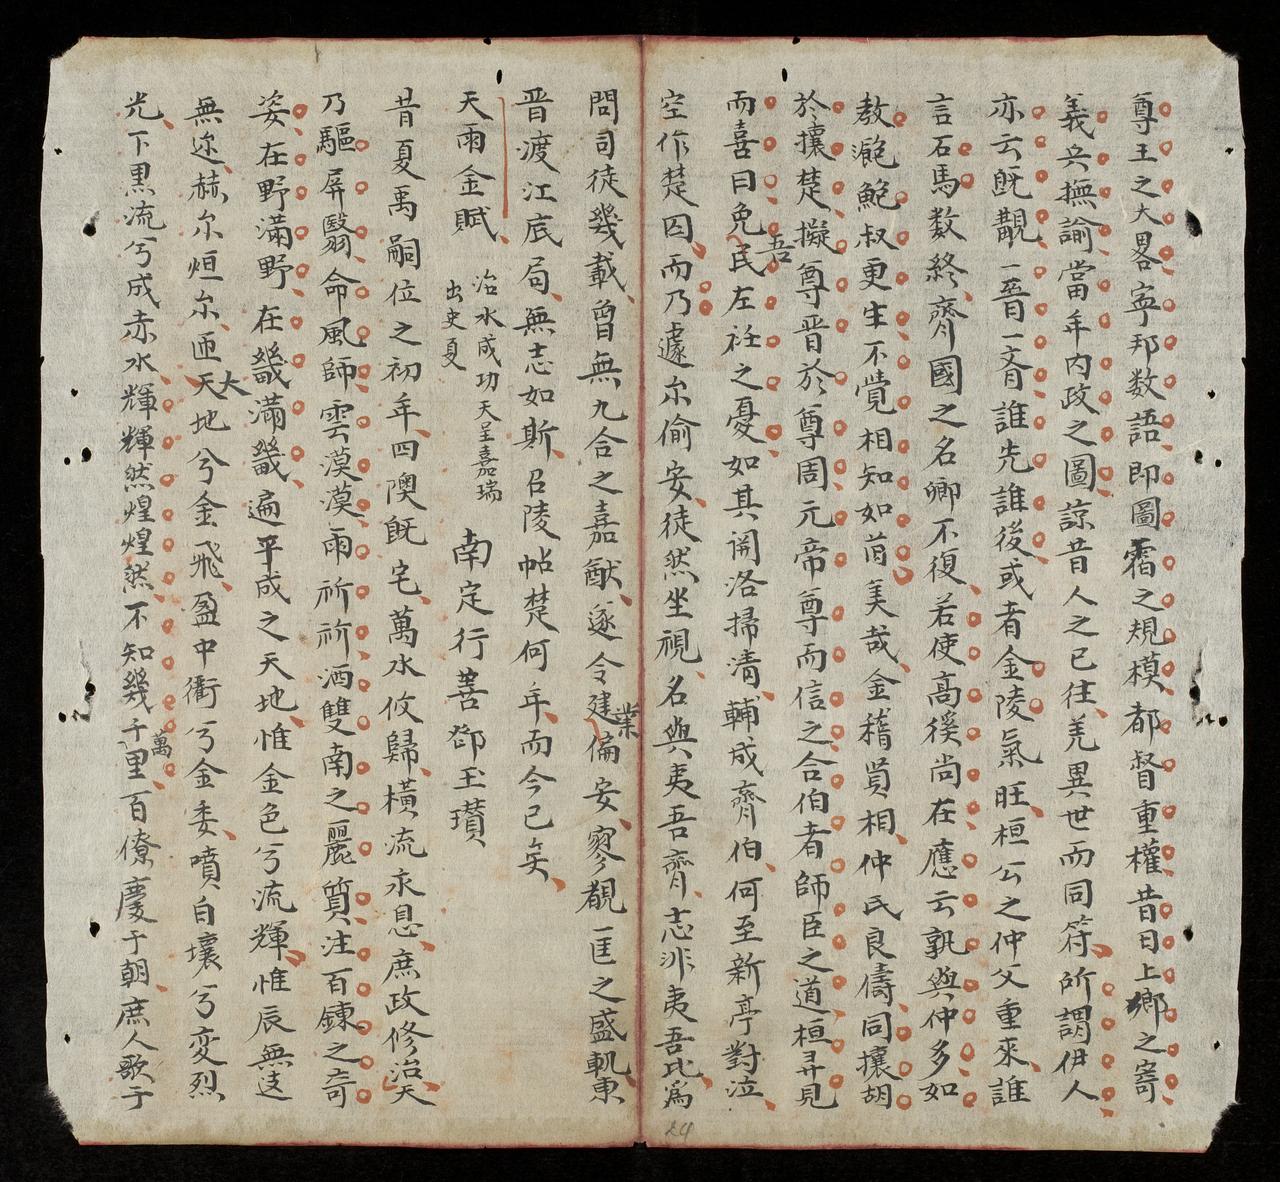 尊王之大畧寧邦数語即圖霸之規模都督重權昔日上鄉之寄
義兵撫諭當年内政之圖諒昔人之已往羌異世而同符所謂伊人
亦云旣覩一晉一齊誰先誰後或者金陵氣旺桓公之仲父重來誰
言石馬数終齊國之名卿不復若使高徯尚在應云孰與仲多如
敖滟鮑叔更生不覺相知如前美哉金𥡴貿相仲民良儔同攘胡
於攘楚擬尊晋於尊周元帝尊而信之合伯者師臣之道桓彛見
而喜曰免吾民左衽之憂如其開洛掃清輔成齊伯何至新亭對泣
空作楚囚而乃遽尔偷安徒然坐視名與夷吾齊志非夷吾比爲
問司徒幾載曾無九合之嘉猷遂令建業偏安寥覩一匡之盛軌東
晋渡江底局無志如斯召陵帖楚何年而今已矣
天雨金賦 治水成功天呈嘉瑞
出史夏
南定行善郤玉瓚
昔夏禹嗣位之初年四隩旣宅萬水攸歸橫流永息庶政修治天
乃驅屏翳命風師雲漠漠雨祈祈洒雙南之麗質注百鍊之奇
姿在野滿野在畿滿畿遍平成之天地惟金色兮流輝惟辰無迖
無迩赫尔烜尔匝大天地兮金飛盈中衢兮金委噴白壤兮变烈
光下黒流兮成赤水輝輝然煌煌然不知幾千萬里百僚慶于朝庶人歌于
24